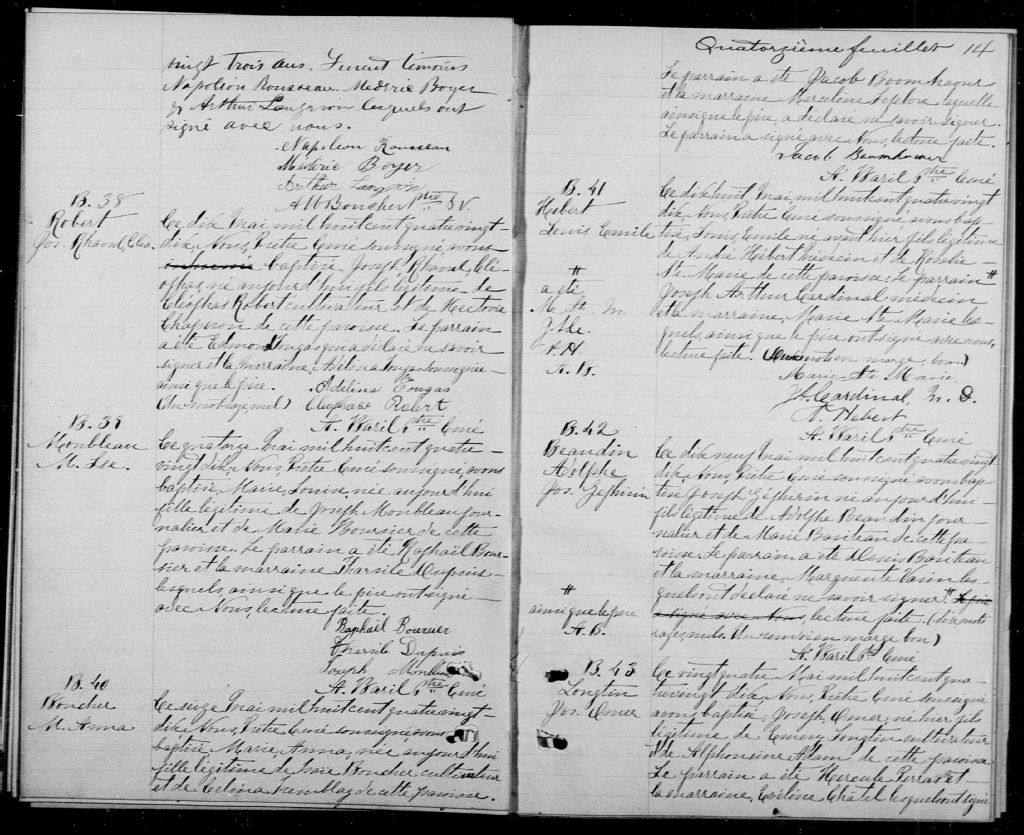 vingt trois ans. Furent témoins
Napoléon Rousseau Mederic Boyer
& Arthur Langevin lesquels ont
signé avec nous.
Napoleon Rousseau
Mederic Boyer
Arthur Langevin
A M Boucher ptre S V.
B. 38
Robert
Jos. Rhaoul, Cléo.
Ce dix Mai mil huit cent quatre vingt-
dix, Nous, Prêtre Curé soussigné, avons
baptisé, Joseph, Rhaoul, Clé-
ophas, né aujourd'hui fils légitime de
Cléophas Robert cultivateur et de Hectorie
Chaperon de cette paroisse. Le parrain
a été Edmond Tougas qui a déclaré ne savoir
signer et la marraine, Adélina Tougas soussignée
ainsi que le père. Adélina Tougas
(Un mot rayé nul) Cléophase Robert
A. Waril Ptre Curé
B. 39
Monbleau
M. Lse.
Ce quatorze Mai mil huit cent quatre-
vingt dix, Nous, Prêtre Curé soussigné, avons
baptisé, Marie, Louise, née aujourd'hui
fille légitime de Joseph Monbleau jour-
nalier et de Marie Bourcier de cette
paroisse. Le parrain a été Raphaël Bour-
sier et la marraine Tharsile Dupuis
lesquels, ainsi que le père ont signé
avec Nous, lecture faite.
Raphaël Boursier
Tharsile Dupuis
Joseph Monbleau
A. Waril Ptre Curé
B. 40
Boucher
M. Anna
Ce seize Mai mil huit cent quatre vingt-
dix, Nous, Prêtre Curé soussigné avons
baptisé, Marie, Anna, née aujourd'hui
fille légitime de Isaïe Boucher cultivateur
et de Célina Tremblay de cette paroisse.
Quatorzième feuillet 14
Le parrain a été Jacob Boomhaour
et la marraine Marceline Lefebvre laquelle
ainsi que le père, a déclaré ne savoir signer.
Le parrain a signé avec Nous, lecture faite.
Jacob Boomhower
A. Waril Ptre Curé
B. 41
Hébert
Louis Emile
Ce dix huit Mai mil huit cent quatre vingt
dix, Nous, Prêtre Curé soussigné, avons bap-
tisé, Louis, Emile né avant hier fils légitime
de André Hébert médecin et de Rosalie
Ste. Marie de cette paroisse. Le parrain #
Joseph Arthur Cardinal médecin
et la marraine, Marie Ste Marie les-
quels, ainsi que le père ont signé avec nous,
lecture faite. (Un mot en marge, bon.)
#
a été
M. St. M.
A. H
A. B.
Marie Ste Marie
J A Cardinal, M. D.
A Hebert
A. Waril Ptre Curé
B. 42
Beaudin
Adolphe
Jos. Zéphirin
Ce dix neuf Mai mil huit cent quatre vingt
dix, Nous, Prêtre Curé soussigné avons bap-
tisé Joseph Zéphirin né aujourd'hui
fils légitime de Adolphe Beaudin jour-
nalier et de Marie Bariteau de cette pa-
roisse. Le parrain a été Denis Bariteau
et la marraine, Marguerite Vaim les-
quels ont déclaré ne savoir signer # le père
a signé avec Nous, lecture faite. (Six mots
rayés, nuls. Un renvoi en marge bon)
#
ainsi que le père
A. B.
A. Waril Ptre Curé
B. 43
Longtin
Jos. Omer
Ce vingt quatre Mai mil huit cent qua-
tre vingt dix, Nous, Prêtre Curé soussigné
avons baptisé, Joseph, Omer, né hier fils
légitime de Emery Longtin cultivateur
& de Alphonsine Adam de cette paroisse
Le parrain a été Hercule Perras et
la marraine, Eveline Châtel lesquels ont signé